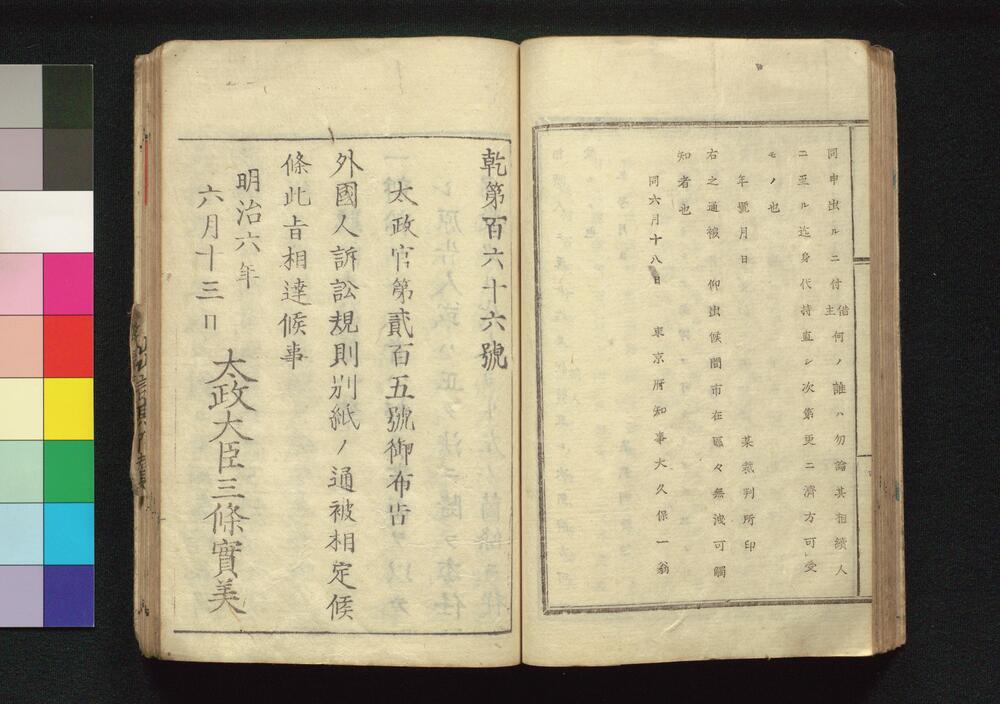 同申出ルニ付借主何ノ誰ハ勿論其相續人
ニ至ル迄身代持直シ次第更ニ濟方可受
モノ也
年號月日　某裁判所印
右之通被　仰出候間市在區々無洩可觸
知者也
同六月十八日　東京府知事大久保一翁
乾第百六十六號
太政官第貳百五號御布告
外國人訴訟規則別紙ノ通被相定候
條此旨相達候事
明治六年
六月十三日
太政大臣三條實美